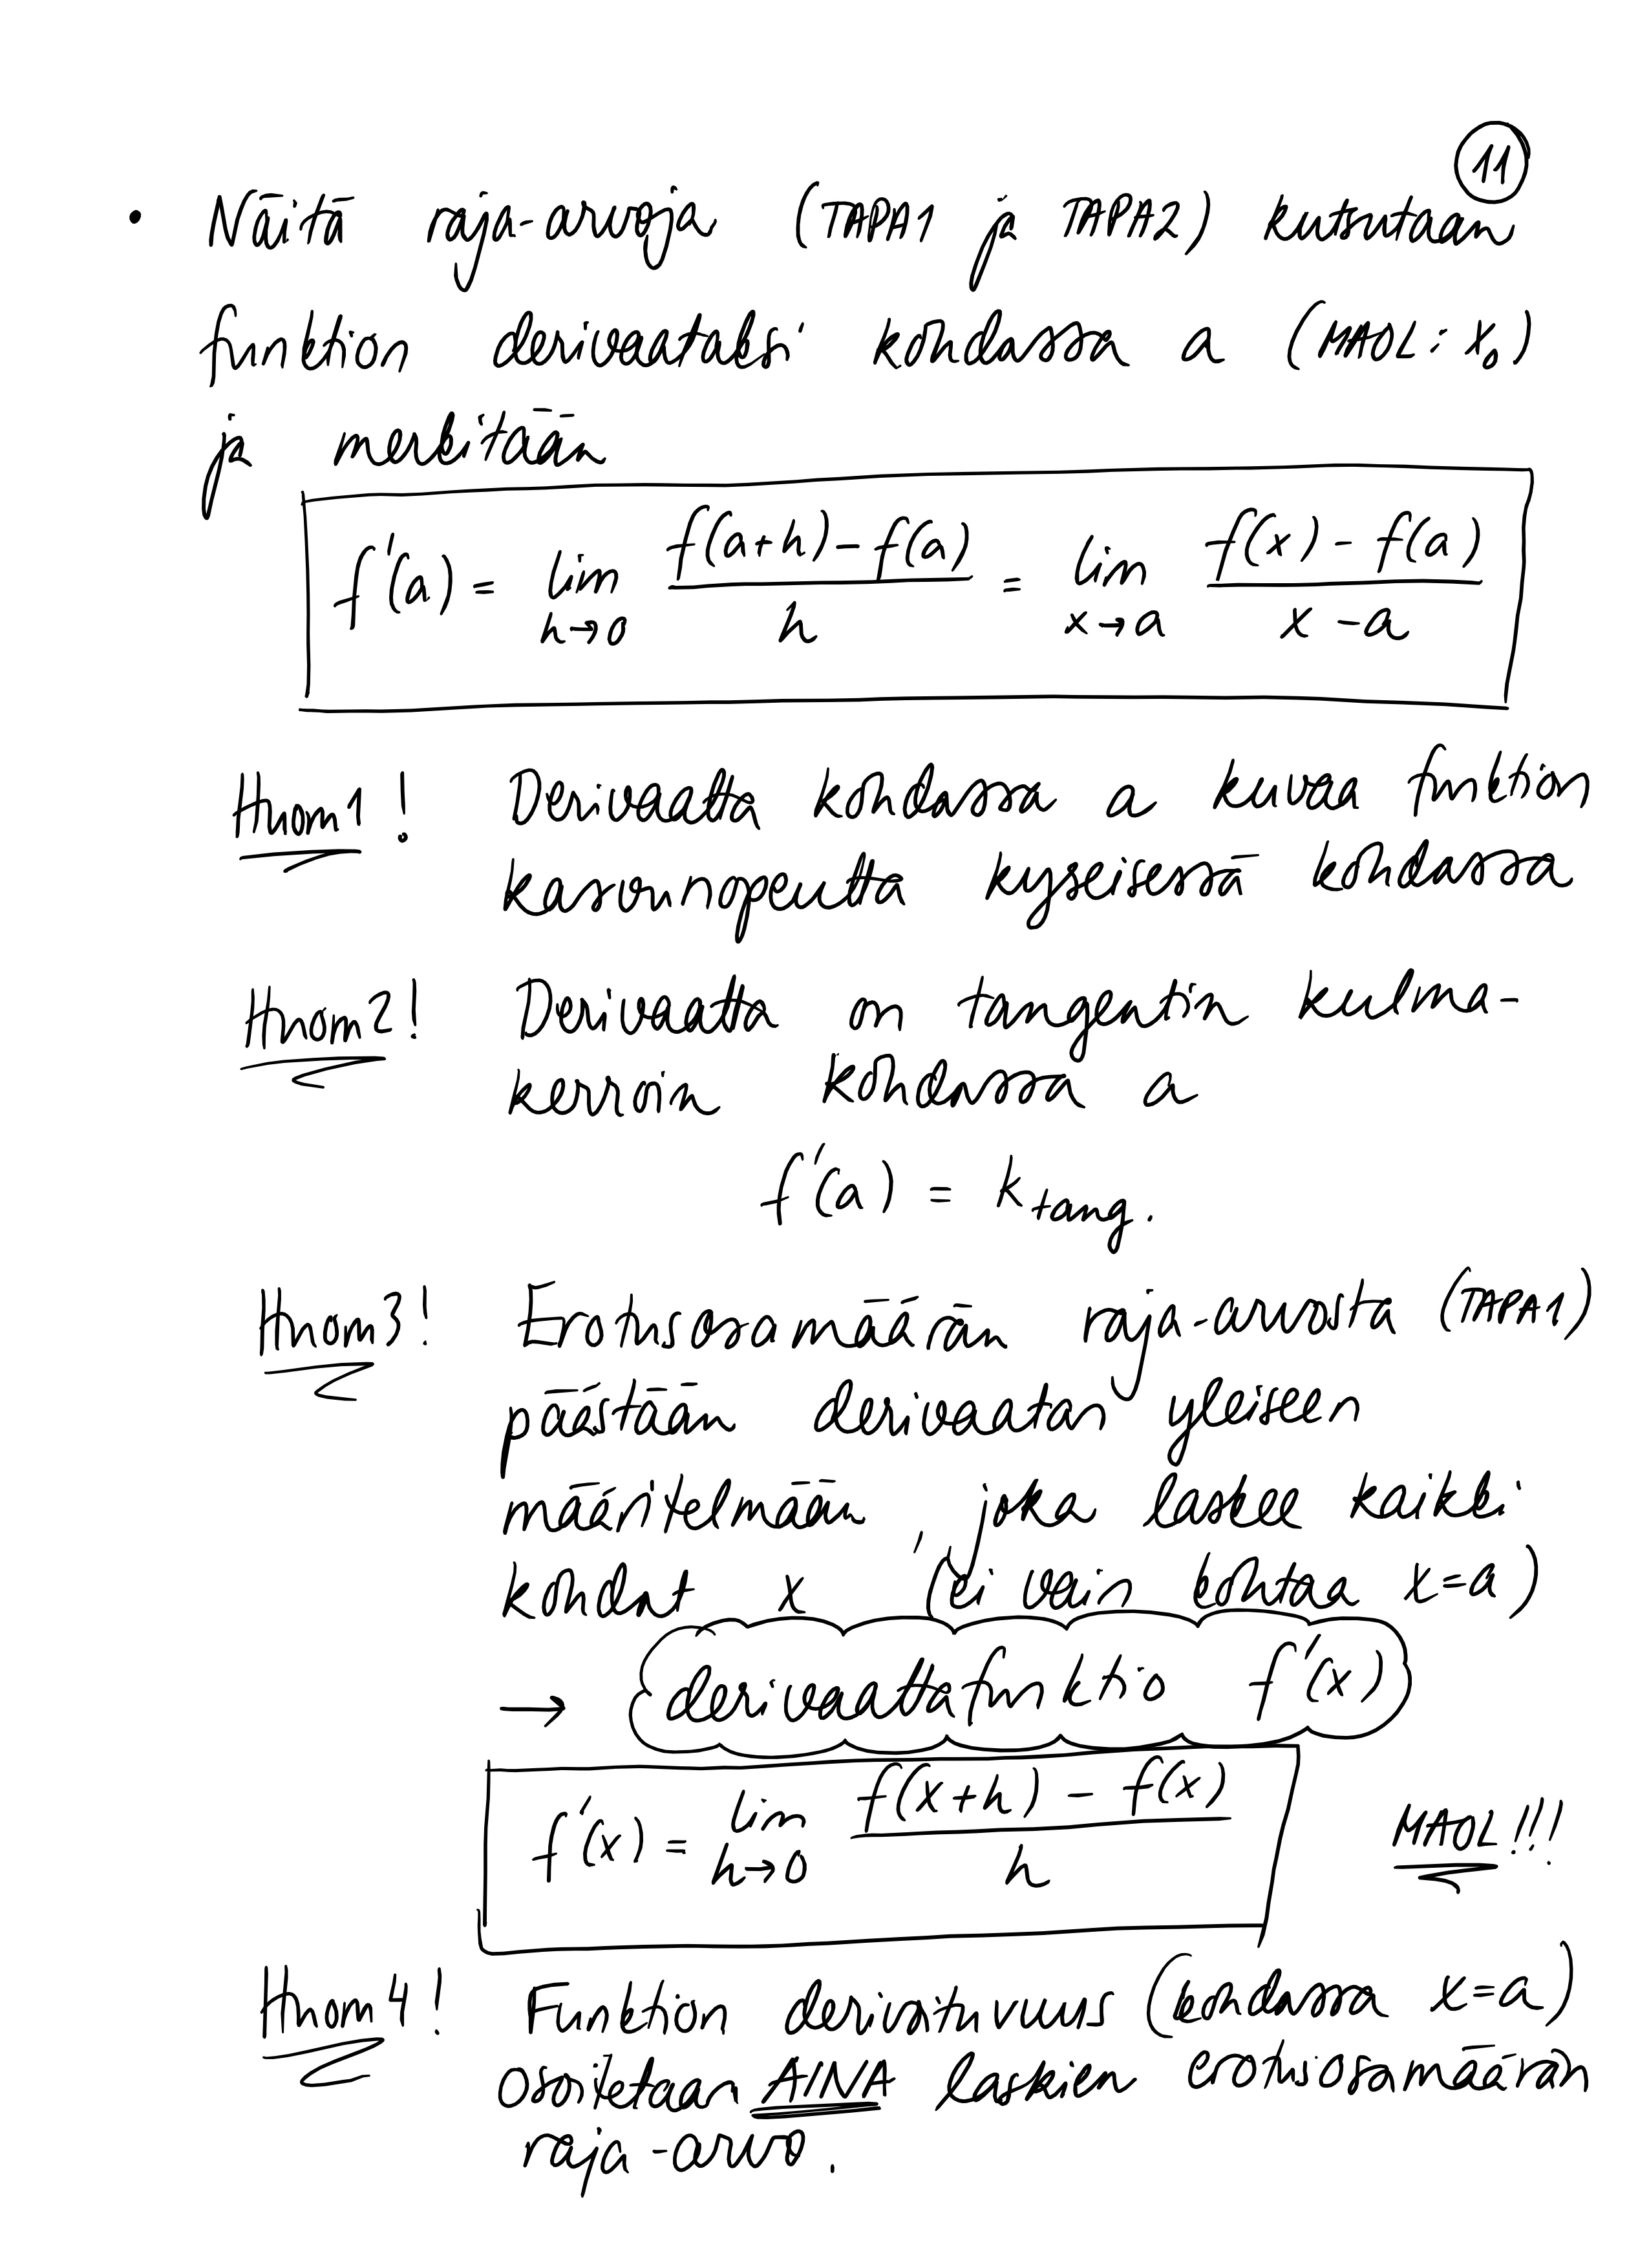 11
• Näitä raja-arvoja (TAPA1 ja TAPA2) kutsutaan
funktion derivaataksi kohdassa a (MAOL: x₀)
ja merkitään
f'(a) = lim h→0 (f(a+h) - f(a))/h = lim x→a (f(x) - f(a))/(x - a)
Huom1! Derivaatta kohdassa a kuvaa funktion
kasvunopeutta kyseisessä kohdassa
Huom2! Derivaatta on tangentin kulma-
kerroin kohdassa a
f'(a) = k tang.
Huom3! Erotusosamäärän raja-arvosta (TAPA1)
päästään derivaatan yleiseen
määritelmään, joka laskee kaikki
kohdat x (ei vain kohtaa x=a)
→ derivaattafunktio f'(x)
f'(x) = lim h→0 (f(x+h) - f(x))/h MAOL!!!
Huom4! Funktion derivoituvuus (kohdassa x=a)
osoitetaan AINA laskien erotusosamäärän
raja-arvo.